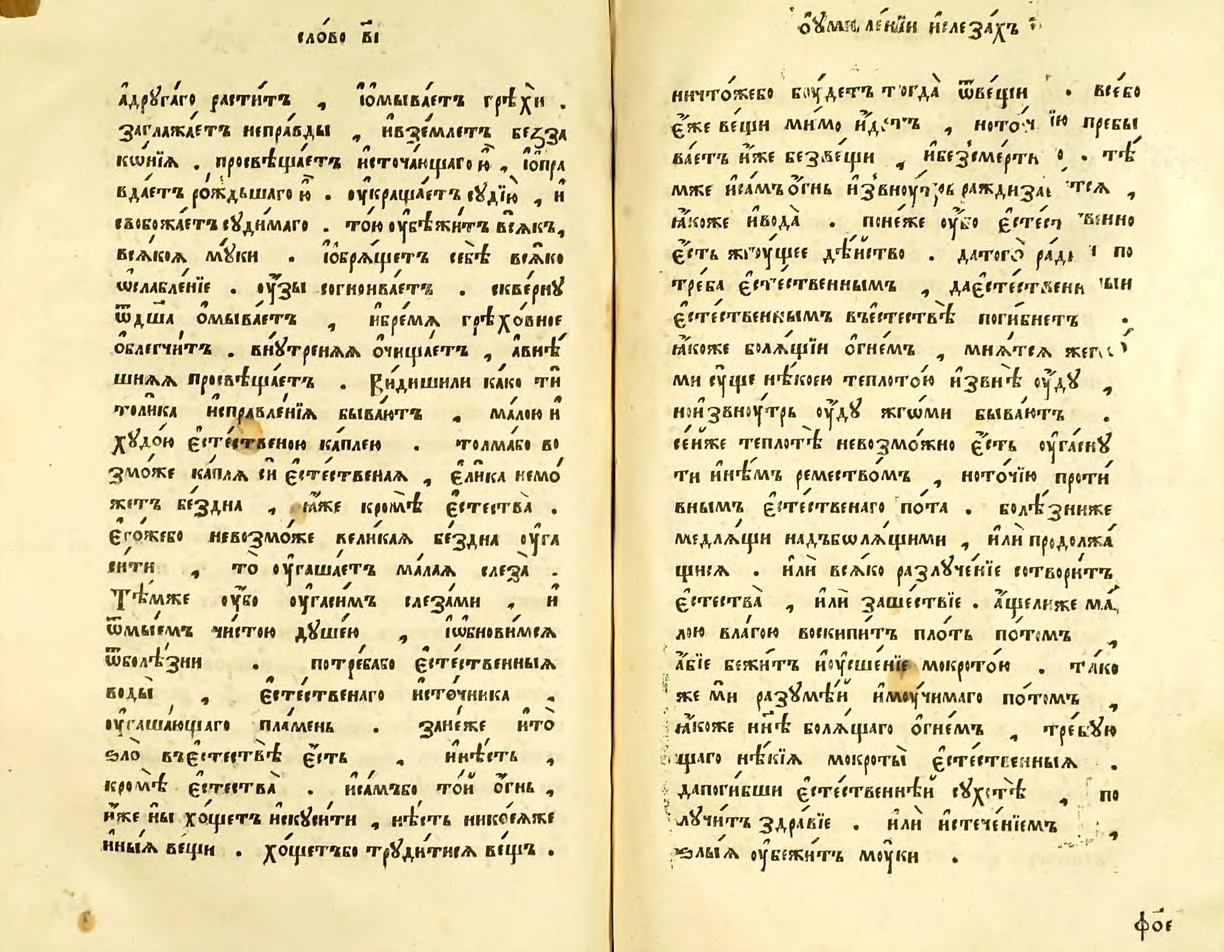 сло́во в҃і
а҆дрꙋга́го расти́тъ , і҆ѡмыва́етъ грѣхѝ .
заглажа́етъ непра́вды , и҆взе́млетъ безза
ко́нїѧ . просвѣща́етъ и҆сточа́ющаго ю҆̀ , і҆ѡпра
вда́етъ ро́ждьшаго ю҆̀ . оу҆краша́етъ сꙋдїю̀ , и҆
свобожа́етъ сꙋди́маго . то́ю оу҆бѣжи́тъ всѧ́къ,
всѧ́коѧ мꙋ́ки . і҆ѡбрѧ́щетъ себѣ̀ всѧ́ко
ѡ҆слабле́нїе . оу҆́зы согнои́ваетъ . скве́рнꙋ
ѿдш҃а̀ ѡ҆мыва́етъ , и҆бре́мѧ грѣхо́вное
ѡ҆блегчи́тъ . внꙋ́треняѧ ѡ҆чища́етъ , а҆внѣ́
шняѧ просвѣща́етъ . Ви́дишили ка́ко ти
толи́ка и҆справле́нїѧ быва́ютъ , ма́лою и҆
хꙋдо́ю є҆сте́ственою ка́плею . толма́бо во
змо́же ка́плѧ сѝ є҆сте́ственаѧ , є҆ли́ка немо́
жетъ бе́здна , ꙗ҆́же кромѣ̀ є҆стества̀ .
є҆го́жебо невозмо́же вели́каѧ бе́здна оу҆га
си́ти , то̀ оу҆гаша́етъ ма́лаѧ слеза̀ .
Тѣ́мже оу҆́бо оу҆гаси́мъ слеза́ми , и҆
ѿмы́емъ чи́стою дꙋше́ю , і҆ѡбнови́мсѧ
ѿболѣ́зни . потре́бабо є҆сте́ственныѧ
воды̀ , є҆сте́ственаго и҆сто́чника ,
оу҆гаша́ющаго пла́мень . зане́же и҆то̀
ѕло̀ въестествѣ̀ є҆́сть , и҆нѣ́сть ,
кромѣ̀ є҆стества̀ . и҆са́мъбо то́й о҆́гнь ,
и҆́же ны̀ хо́щетъ и҆скꙋси́ти , нѣ́сть нико́еѧже
и҆ны́ѧ ве́щи . хо́щетъбо трꙋди́тисѧ ве́щъ .
ѡ҆оумиле́нїи и҆слеза́хъ
ничто́жебо бꙋ́детъ тогда̀ ѿве́щїи . все́бо
є҆́же ве́щи ми́мо и҆́детъ , ното́чїю пребы
ва́етъ и҆́же безве́щи , и҆безсме́ртно . тѣ́
мже и҆са́мъ о҆́гнь и҆звноу́трь раждиза́етсѧ ,
ꙗ҆́коже и҆вода̀ . поне́же оу҆́бо є҆сте́ственно
є҆́сть жгоу́щее дѣ́йство . датого̀ ра́ди и по
тре́ба є҆сте́ственнымъ , дає҆сте́ственныи
є҆сте́ственнымъ въестествѣ̀ поги́бнетъ .
ꙗ҆́коже болѧ́щїи о҆гне́мъ , мнѧ́тсѧ жего́
ми сꙋ́ще нѣ́коею теплото́ю и҆звнѣ̀ оу҆́дꙋ ,
ноизвноу́трь оу҆́дꙋ жго́ми быва́ютъ .
се́йже теплотѣ̀ невозмо́жно є҆́сть оу҆гаснꙋ
ти и҆нѣ́мъ ремество́мъ , ното́чїю проти́
внымъ є҆сте́ственаго по́та . болѣ́зниже
медлѧ́щи надъбѡлѧ́щими , и҆лѝ продолжа́
щисѧ . и҆лѝ всѧ́ко разлꙋче́нїе сотвори́тъ
є҆стества̀ , и҆лѝ заше́ствїе . а҆́щелиже ма́
лою вла́гою воскипи́тъ пло́ть по́томъ ,
а҆́бїе бежи́тъ и҆оусше́нїе мокрото́ю . та́ко
же мѝ разꙋмѣ́й и҆моучи́маго по́томъ ,
ꙗ҆́коже нн҃ѣ болѧ́щаго о҆гне́мъ , тре́бꙋю
щаго нѣ́кїѧ мокроты̀ є҆сте́ственныѧ .
дапоги́бши є҆сте́ственнѣй сꙋхотѣ̀ , по
лꙋчи́тъ здра́вїе . и҆лѝ и҆стече́нїемъ
ѕлы́ѧ оу҆бежи́тъ моу́ки .
фо҃є